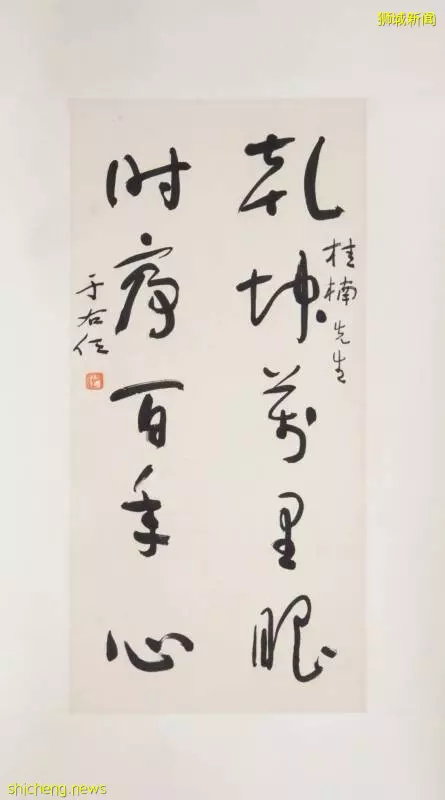 狮城新闻
乾坤萬里眼
桂楠先生
时序百年心
于右任
shicheng.news